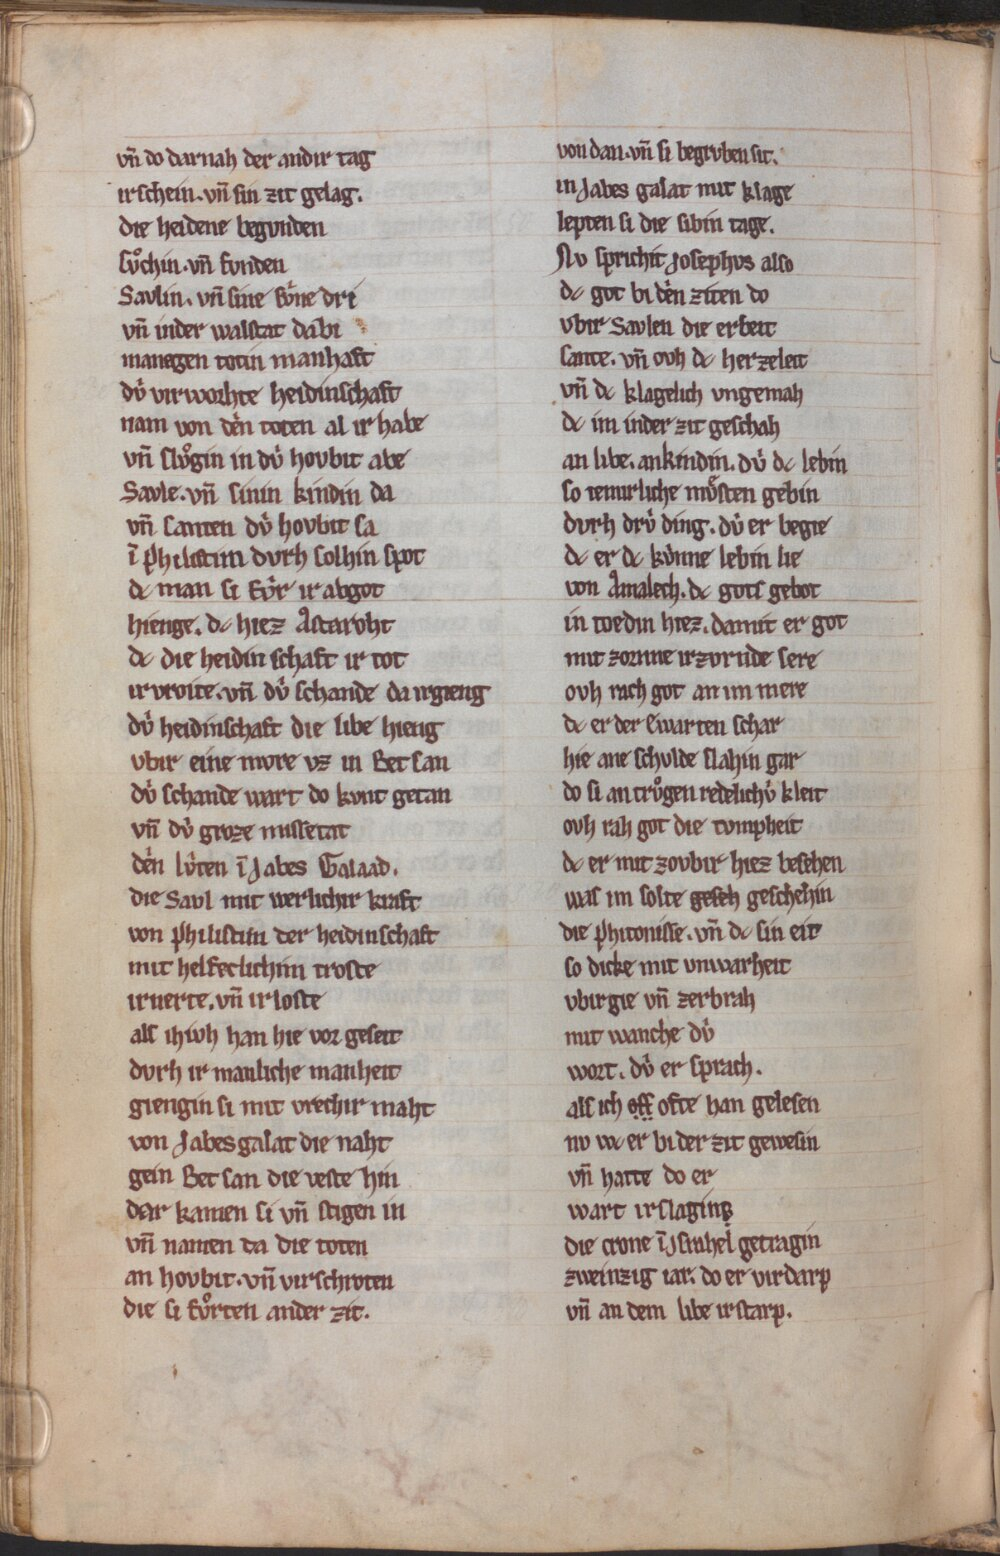 vn̄ do darnah der andir tag
irschein. vn̄ sin zit gelag.
die heidene begvnden
sv̊chin. vn̄ fvnden
Savlin. vn̄ sine sv̊ne dri
vn̄ inder walstat dabi
manegen totin manhaft
dv̍ virworhte heidinschaft
nam von de̍n toten al ir habe
vn̄ slv̊gin in dv̍ hovbit abe
Savle. vn̄ sinin kindin da
vn̄ santen dv̍ hovbit sa
ī philistim dvrh solhin spot
dc man si fv̍r ir abgot
hienge. dc hiez Astaroht
dc die heidin schaft ir tot
irvroite. vn̄ dv̍ schande da irgieng
dv̍ heidinschaft die libe hieng
vbir eine mvre vz in Betsan
dv̍ schande wart do kvnt getan
vn̄ dv̍ groze missetat
de̍n lv̍ten ī Jabes Galaad.
die Savl mit werlichir kraft
von philistim der heidinschaft
mit helfeclichim troste
irnerte. vn̄ ir loste
als ihiwh han hie vor geseit
dvrh ir manliche manheit
giengin si mit vrechir maht
von Jabesgalat die naht
gein Betsan die veste hin
dar kamen si vn̄ stigen in
vn̄ namen da die toten
an hovbit. vn̄ virschroten
die si fv̊rten ander zit.
von dan. vn̄ si begrvben sit.
in Jabes galat mit klage
lepten si die sibin tage.
Nv sprichit Josephvs also
dc got bi de̍n ziten do
vbir Savlen die erbeit
sante. vn̄ ovh dc herzeleit
vn̄ dc klagelich vngemah
dc im inder zit geschah
an libe. an kindin. dv̍ dc lebin
so iemirliche mv̊sten gebin
dvrh drv̍ ding. dv̍ er begie
dc er dc kv̍nne lebin lie
von Amalech. dc gots gebot
in toedin hiez. damit er got
mit zornne irzvrnde sere
ovh rach got an im mere
dc er der Ewarten schar
hie ane schvlde slahin gar
do si an trv̊gen redelichv̍ kleit
ovh rah got die tvmpheit
dc er mit zovbir hiez besehen
was im solte gesch geschehin
die phitonisse. vn̄ dc sin eit
so dicke mit vnwarheit
vbirgie vn̄ zerbrah
mit wanche dv̍
wort. dv̍ er sprach.
als ich off ofte han gelesen
nv wc er bi der zit gewesin
vn̄ hatte do er
wart irslagins
die crone ī Jsrahel getragin
zweinzig iar. do er virdarp
vn̄ an dem libe irstarp.